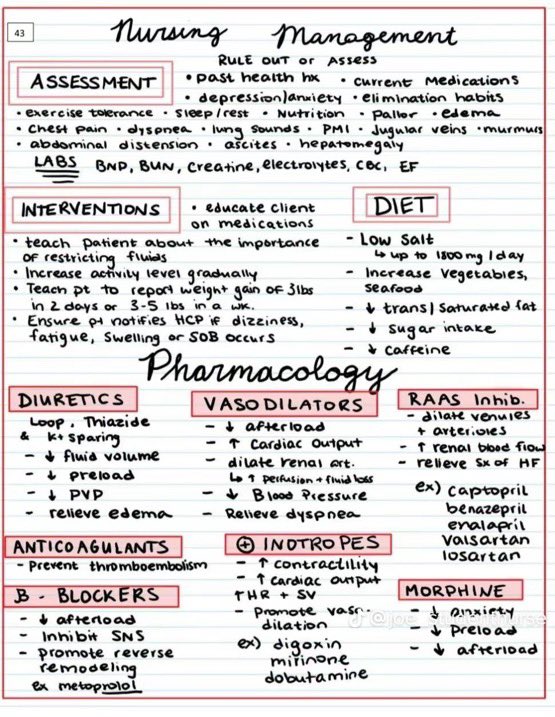 43
Nursing Management
RULE OUT or ASSESS
ASSESSMENT
• past health hx • current medications
• depression/anxiety • elimination habits
• exercise tolerance • sleep/rest • Nutrition • Pallor • edema
• Chest pain • dyspnea • lung sounds • PMI • Jugular veins • murmurs
• abdominal distension • ascites • hepatomegaly
LABS BNP, BUN, Creatine, electrolytes, CBC, EF
INTERVENTIONS
• educate client
on medications
• teach patient about the importance
of restricting fluids
• Increase activity level gradually
• Teach pt to report weight gain of 3lbs
in 2 days or 3-5 lbs in a wk.
• Ensure pt notifies HCP if dizziness,
fatigue, swelling or SOB occurs
DIET
- Low Salt
↳ up to 1800mg/day
- Increase vegetables,
seafood
- ↓ trans/saturated fat
- ↓ sugar intake
- ↓ caffeine
Pharmacology
DIURETICS
Loop, Thiazide
& K+ sparing
- ↓ fluid volume
- ↓ preload
- ↓ PVP
- relieve edema
VASODILATORS
- ↓ afterload
- ↑ Cardiac output
- dilate renal art.
↳ ↑ perfusion + fluid loss
- ↓ Blood Pressure
- Relieve dyspnea
RAAS Inhib.
- dilate venules
+ arterioles
- ↑ renal blood flow
- relieve sx of HF
ex) captopril
benazepril
enalapril
valsartan
losartan
ANTICOAGULANTS
- Prevent thromboembolism
B - BLOCKERS
- ↓ afterload
- Inhibit SNS
- promote reverse
remodeling
ex metoprolol
⊕ INOTROPES
- ↑ contractility
- ↑ cardiac output
↑HR + SV
- Promote vaso-
dilation
ex) digoxin
milrinone
dobutamine
MORPHINE
- ↓ anxiety
- ↓ preload
- ↓ afterload